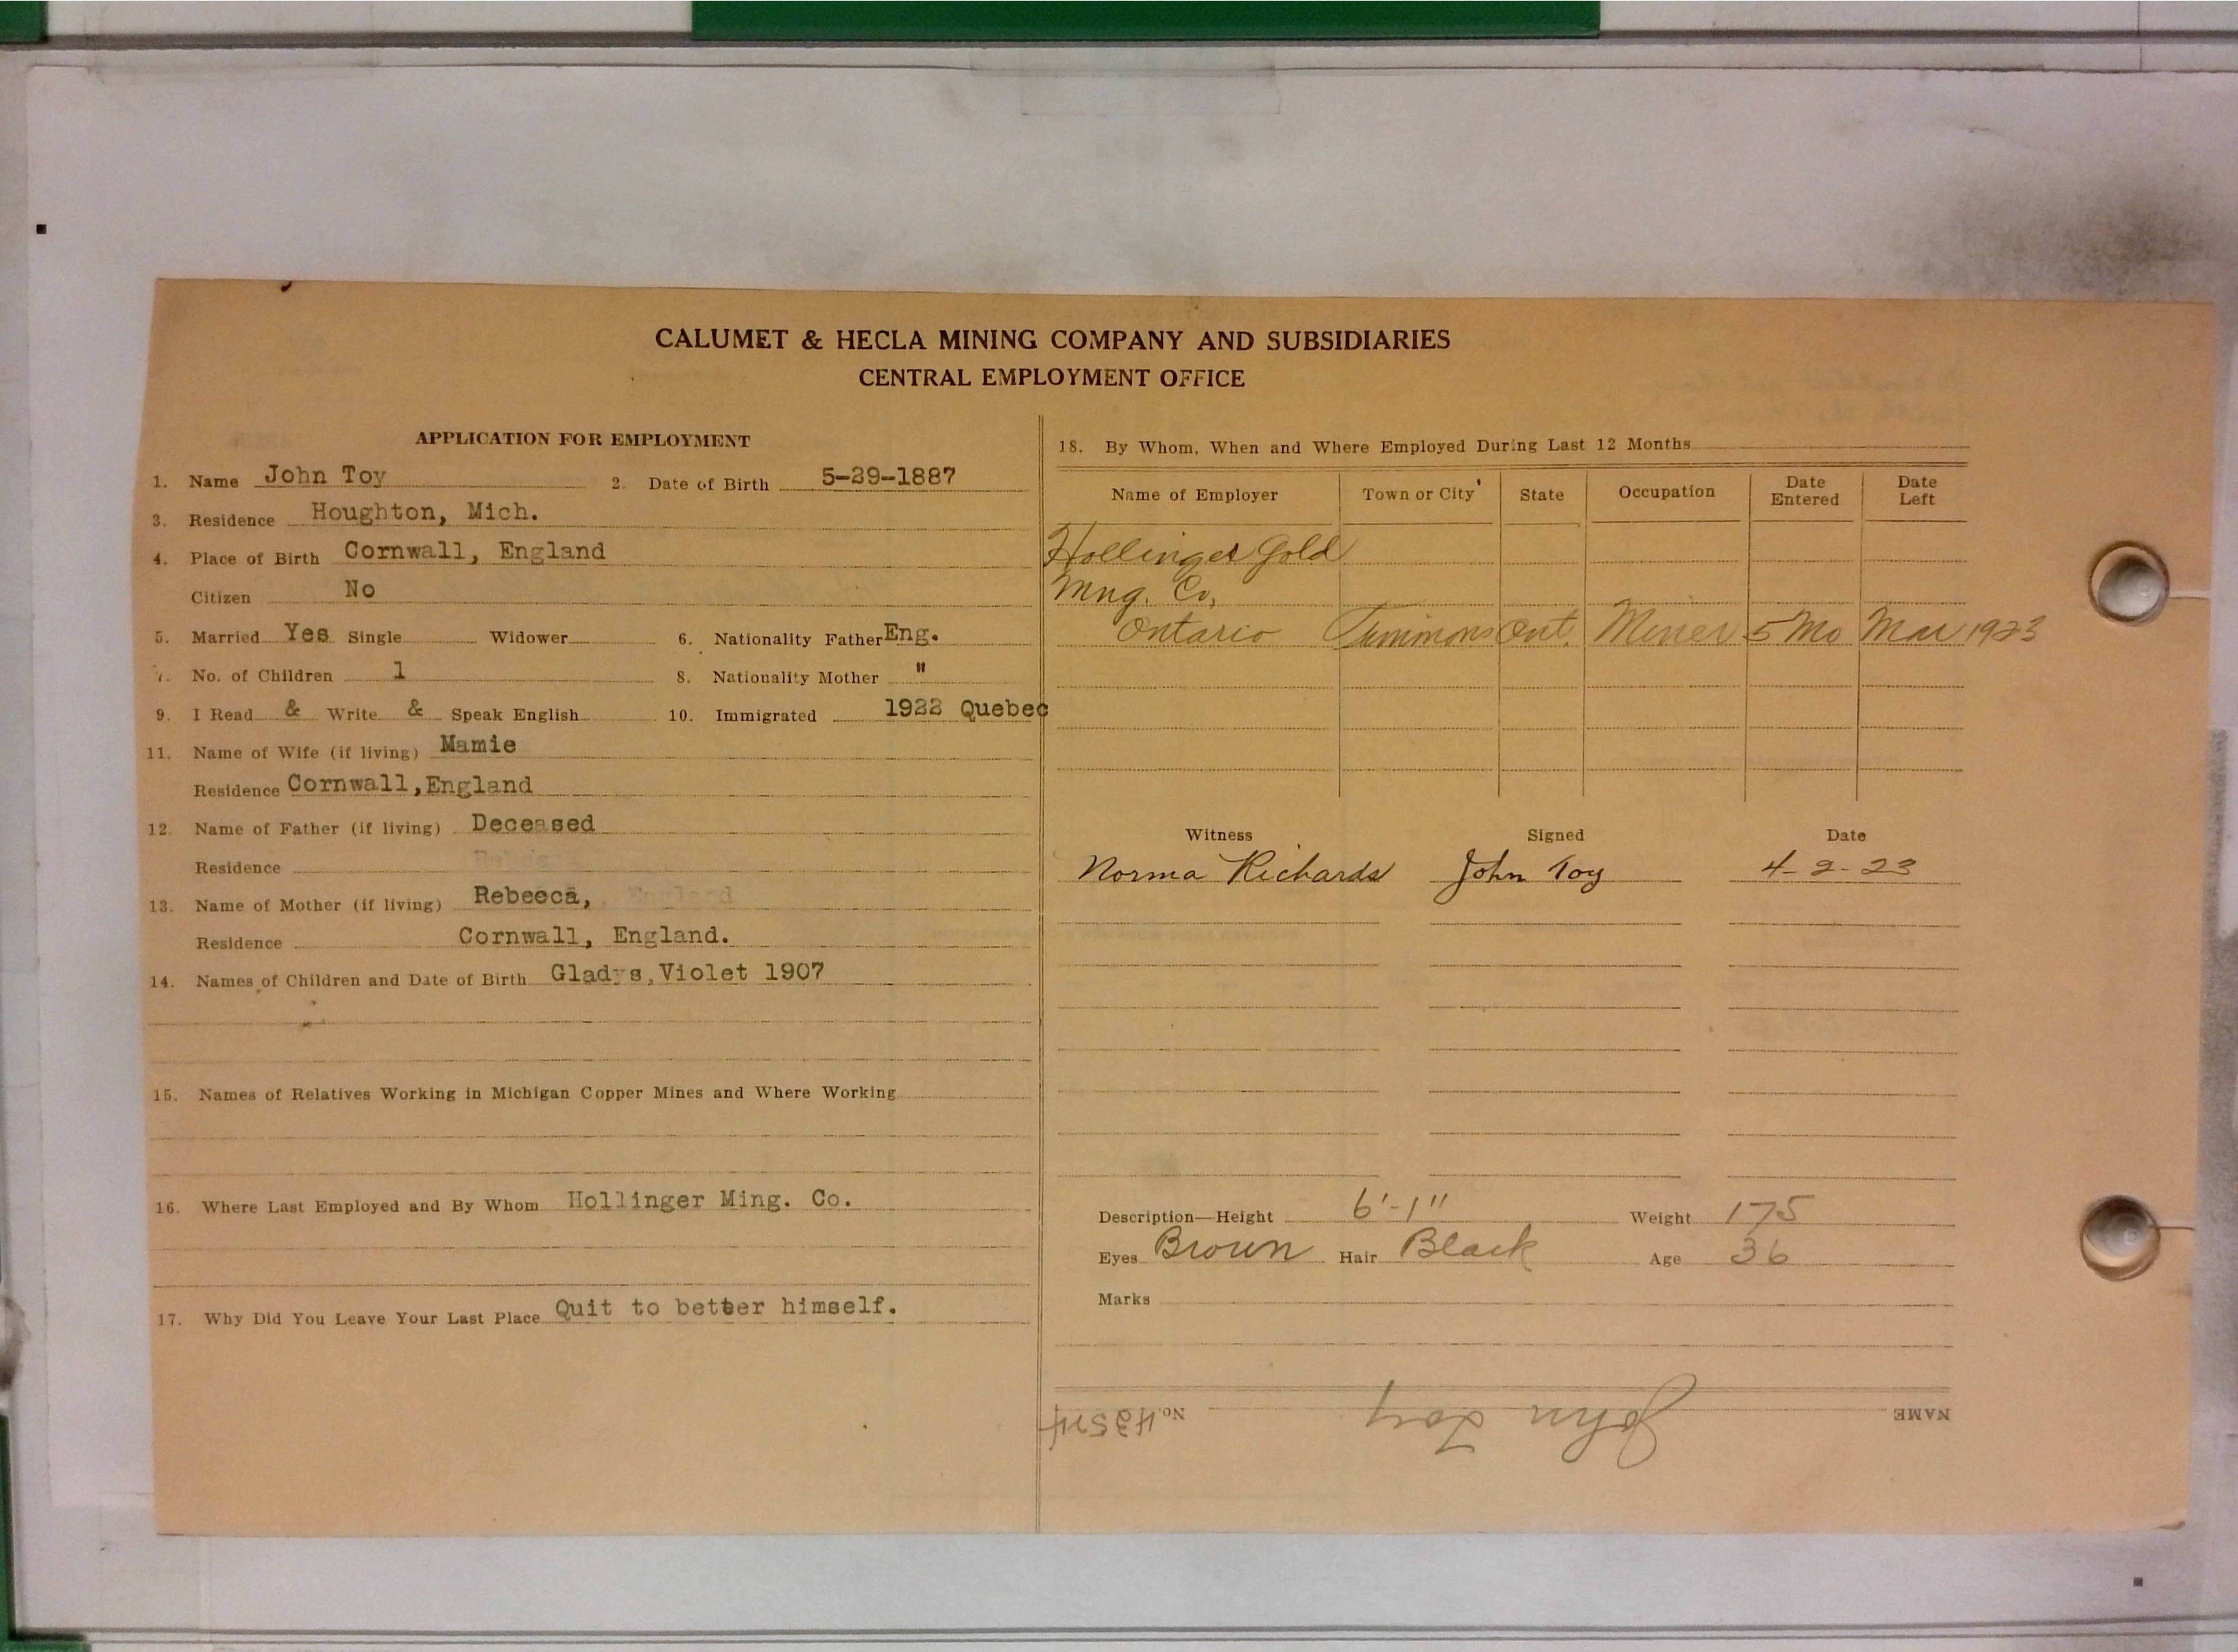 CALUMET & HECLA MINING COMPANY AND SUBSIDIARIES
CENTRAL EMPLOYMENT OFFICE
APPLICATION FOR EMPLOYMENT
1. Name John Toy 2. Date of Birth 5-29-1887
3. Residence Houghton, Mich.
4. Place of Birth Cornwall, England
Citizen No
5. Married Yes Single Widower 6. Nationality Father Eng.
7. No. of Children 1 8. Nationality Mother "
9. I Read & Write & Speak English 10. Immigrated 1922 Quebec
11. Name of Wife (if living) Mamie
Residence Cornwall, England
12. Name of Father (if living) Deceased
Residence
13. Name of Mother (if living) Rebeeca,
Residence Cornwall, England.
14. Names of Children and Date of Birth Gladys, Violet 1907
15. Names of Relatives Working in Michigan Copper Mines and Where Working
16. Where Last Employed and By Whom Hollinger Ming. Co.
17. Why Did You Leave Your Last Place Quit to better himself.
18. By Whom, When and Where Employed During Last 12 Months
Name of Employer Town or City State Occupation Date Entered Date Left
Hollinger Gold
Mng. Co,
Ontario Timmons Ont. Miner 5 Mo Mar 1923
Witness Signed Date
Norma Richards John Toy 4-2-23
Description—Height 6'-1" Weight 175
Eyes Brown Hair Black Age 36
Marks
NAME John Toy No.